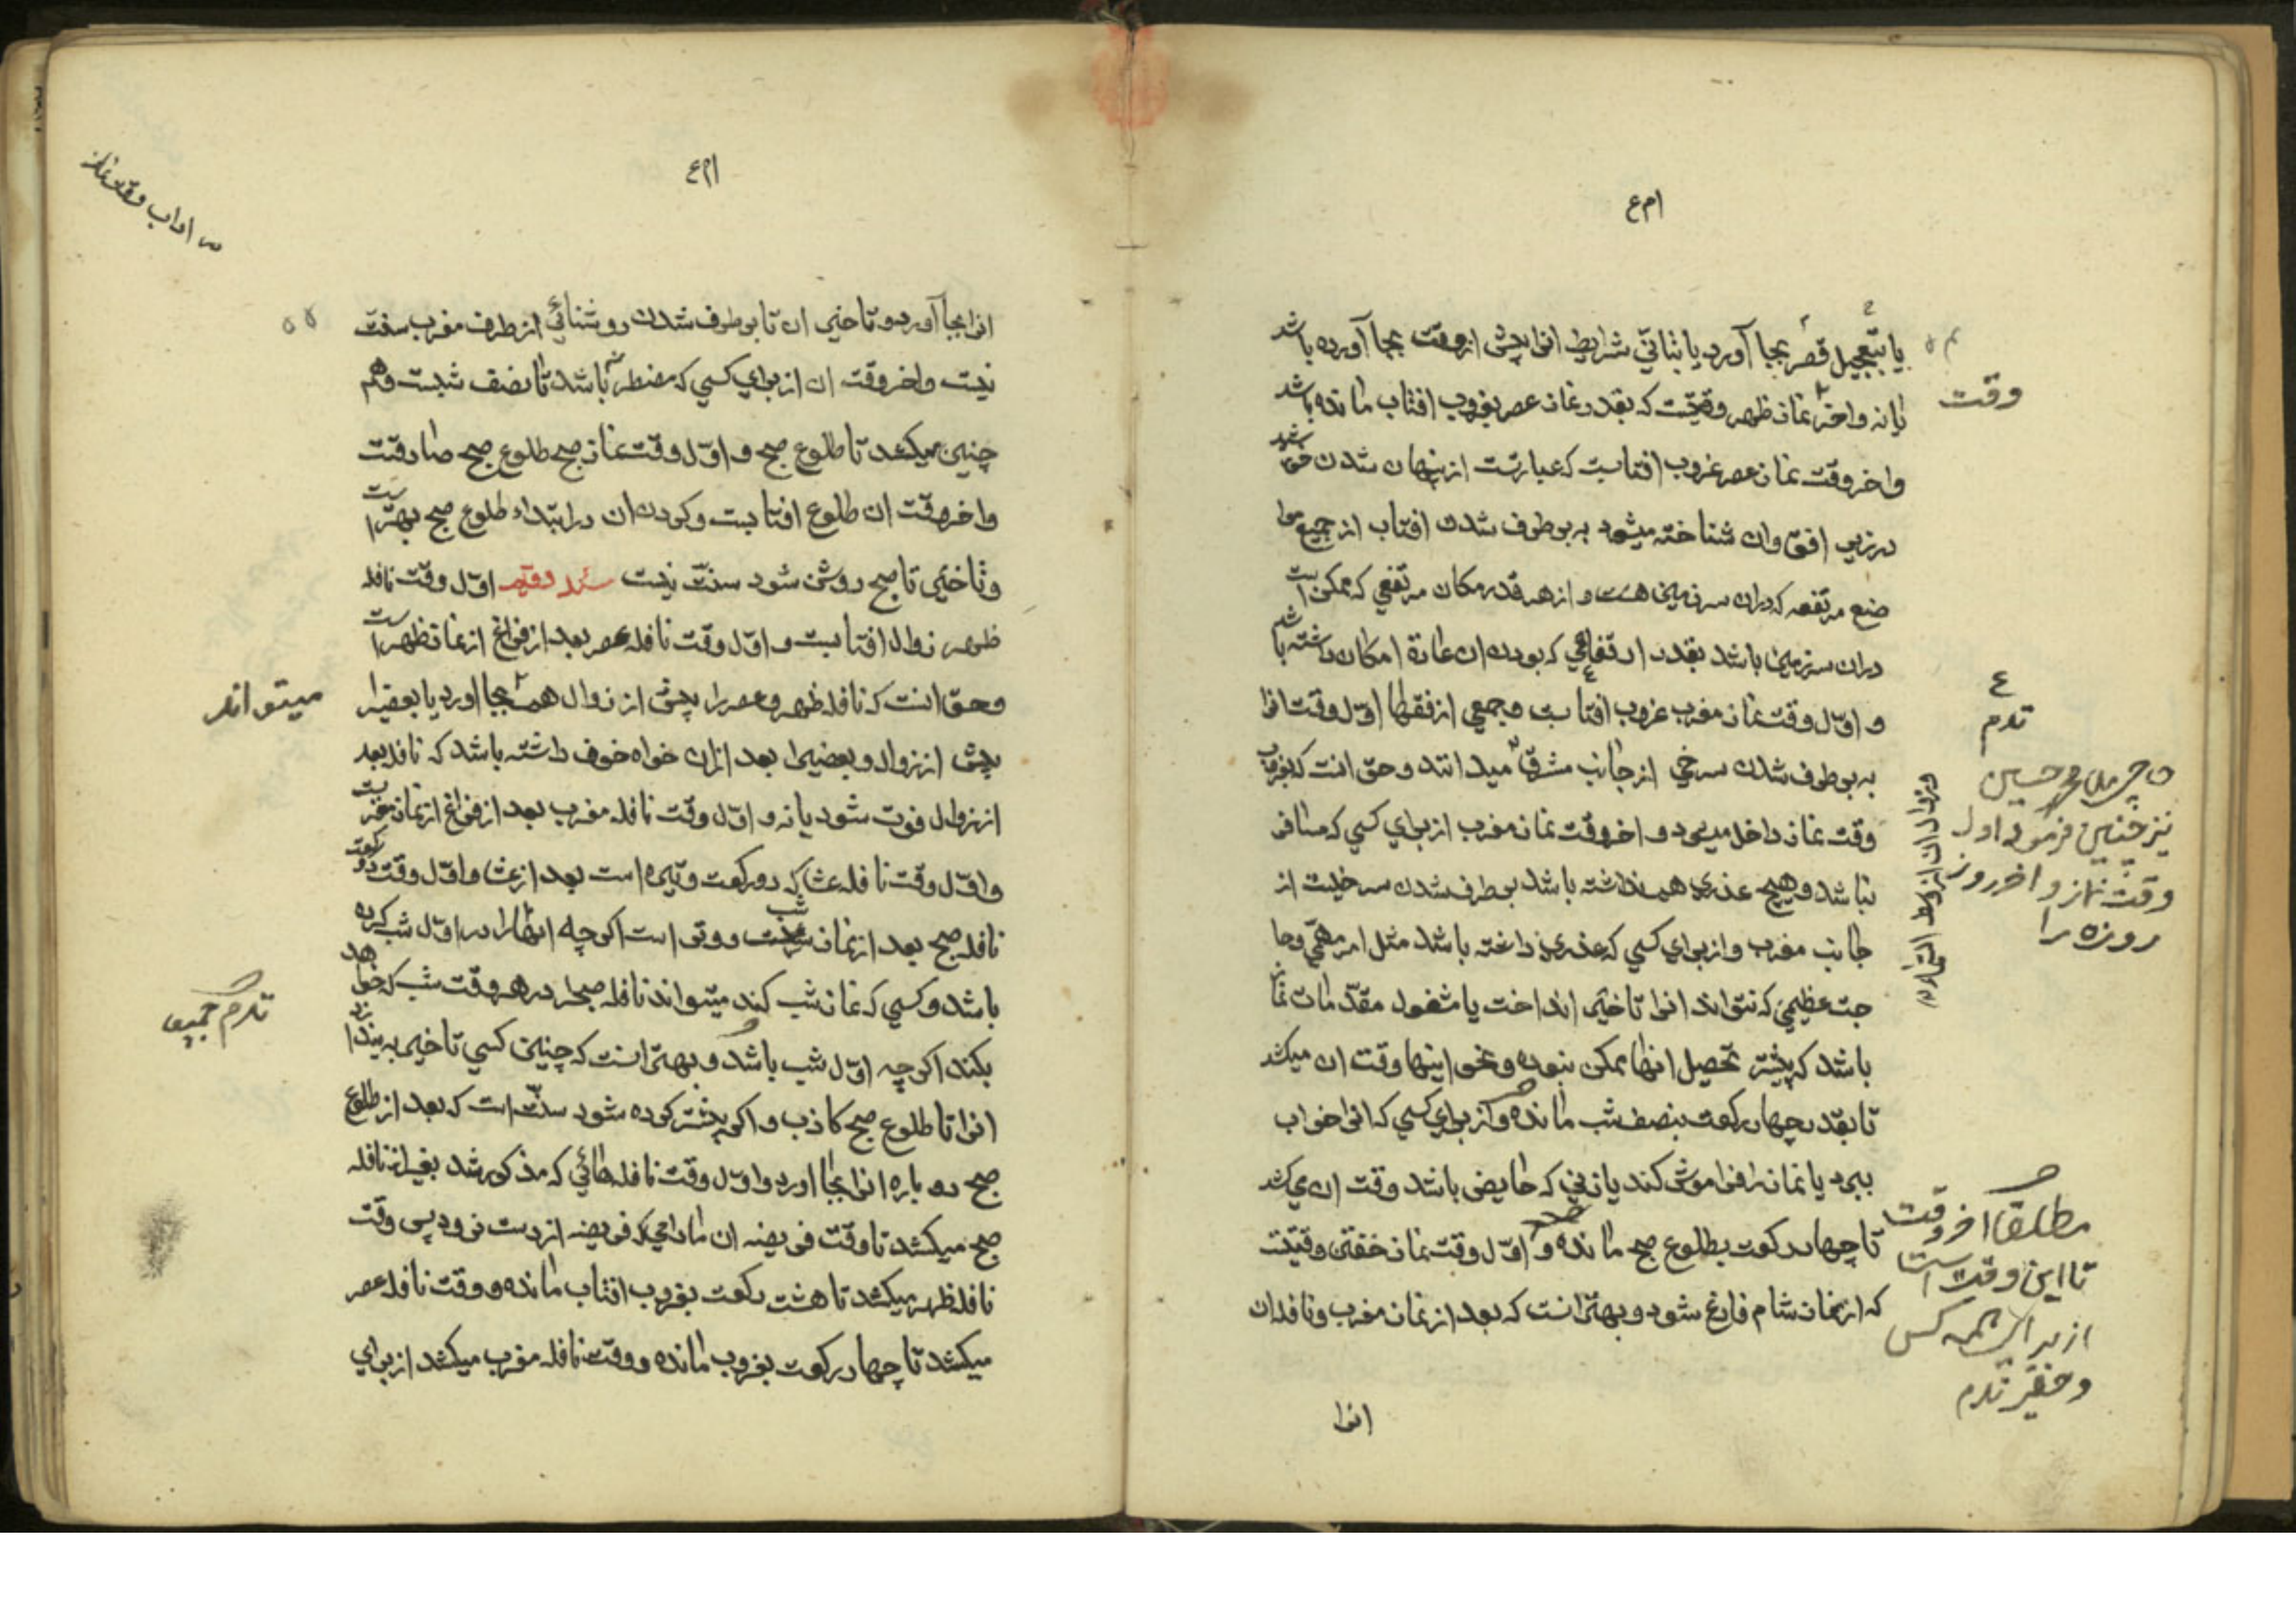 یا بتعجیل قصر بجا آورد یا بثاتی شرایط انرا پیش از وقت بجا آورده باشد
یا نه و اخر نماز ظهر وقتیست که بقدر نماز عصر بغروب افتاب مانده باشد
وقت
و اخر وقت نماز عصر غروب افتابست که عبارتست از پنهان شدن
در زیر افق و ان شناخته میشود به بر طرف شدن افتاب از جمیع موا
ضع مرتفعه که در ان سرزمین هست و از هر قدر مکان مرتفعی که ممکن است
در ان سرزمین باشد بقدر ارتفاعی که بودن ان عادة امکان داشته باشد
و اول وقت نماز مغرب غروب افتابست و جمعی از فقها اول وقت انرا
به بر طرف شدن سرخی از جانب مشرق میدانند و حق انست که بغروب
وقت نماز داخل میشود و اخر وقت نماز مغرب از برای کسی که مسافر
نباشد و هیچ عذری هم نداشته باشد بر طرف شدن سرخیست از
جانب مغرب و از برای کسی که عذری داشته باشد مثل امر مهمی و حا
جت عظیمی که نتواند انرا تاخیر انداخت یا مشغول مقدمات نماز
باشد که پیشتر تحصیل انها ممکن نبوده و نحو اینها وقت ان میکشد
تا بقدر چهار رکعت بنصف شب مانده و از برای کسی که انرا خواب
ببرد یا نماز را فراموش کند یا زنی که حایض باشد وقت ان میکشد
تا چهار رکعت بطلوع صبح مانده و اول وقت نماز خفتن وقتیست
که از نماز شام فارغ شود و بهتر انست که بعد از نماز مغرب و نافله ان
انرا
نیز چنین فرموده اول
وقت نماز و اخر روز
روزه را
مطلقا اخر وقت
تا این وقت است
از برای همه کس
آداب وقت نماز
انرا بجا آورد و تاخیر ان تا بر طرف شدن روشنائی از طرف مغرب سنت
نیست و اخر وقت ان از برای کسی که مضطر باشد تا نصف شبست و هم
چنین میکشد تا طلوع صبح و اول وقت نماز صبح طلوع صبح صادقست
و اخر وقت ان طلوع افتابست و کردن ان در ابتداء طلوع صبح بهتر است
و تاخیر تا صبح روشن شود سنت نیست اول وقت نافله
ظهر زوال افتابست و اول وقت نافله عصر بعد از فراغ از نماز ظهر است
و حق انست که نافله ظهر و عصر را پیش از زوال هم بجا اورد یا بعضیرا
میتواند
پیش از زوال و بعضیرا بعد از ان خواه خوف داشته باشد که نافله بعد
از زوال فوت شود یا نه و اول وقت نافله مغرب بعد از فراغ از نماز مغربست
و اول وقت نافله عشا که دو رکعت وتیره است بعد از عشا و اول وقت دو رکعت
نافله صبح بعد از نماز شب و وتر است اگر چه انها را در اول شب کرده
باشد و کسی که نماز شب کند میتواند نافله صبح را در هر وقت شب که خواهد
بکند اگر چه اول شب باشد و بهتر انست که چنین کسی تاخیر بیندازد
انرا تا طلوع صبح کاذب و اگر پیشتر کرده شود سنت است که بعد از طلوع
صبح دو باره انرا بجا اورد و اول وقت نافله هائی که مذکور شد بغیر از نافله
صبح میکشد تا وقت فریضه ان مادامی که فریضه از دست نرود پس وقت
نافله ظهر میکشد تا هشت رکعت بغروب افتاب مانده و وقت نافله عصر
میکشد تا چهار رکعت بغروب مانده و وقت نافله مغرب میکشد از برای